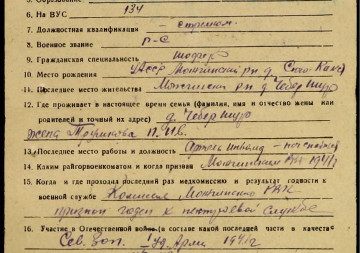 6. На ВУС 134
7. Должностная квалификация - стрелок
8. Военное звание р-с
9. Гражданская специальность шофер
10. Место рождения УАССР Можгинский р-н д.
11. Последнее место жительства Можгинский р-н д.
12. Где проживает в настоящее время семья (фамилия, имя и отчество жены или
родителей и точный их адрес) д.
жена
13. Последнее место работы и должность Артель инвалид -
14. Каким райгорвоенкоматом и когда призван Можгинским РВК 1941 г
15. Когда и где проходил последний раз медкомиссию и результат годности к
военной службе Комиссия Можгинского РВК
признан годен к нестроевой службе
16. Участие в Отечественной войне (в составе какой части и в качестве
Сев. Зап. Уд. Арм. 1941 г